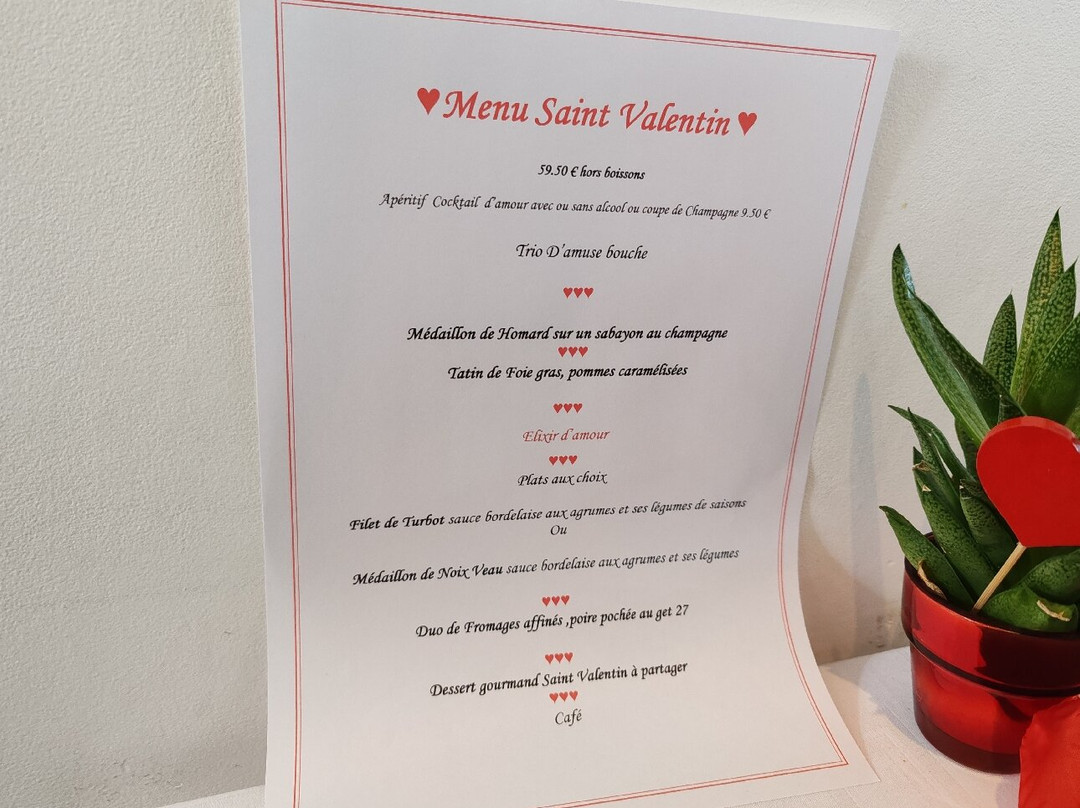 ♥Menu Saint Valentin♥
59.50 € hors boissons
Apéritif Cocktail d'amour avec ou sans alcool ou coupe de Champagne 9.50 €
Trio D'amuse bouche
♥♥♥
Médaillon de Homard sur un sabayon au champagne
♥♥♥
Tatin de Foie gras, pommes caramélisées
♥♥♥
Elixir d'amour
♥♥♥
Plats aux choix
Filet de Turbot sauce bordelaise aux agrumes et ses légumes de saisons
Ou
Médaillon de Noix Veau sauce bordelaise aux agrumes et ses légumes
♥♥♥
Duo de Fromages affinés ,poire pochée au get 27
♥♥♥
Dessert gourmand Saint Valentin à partager
♥♥♥
Café